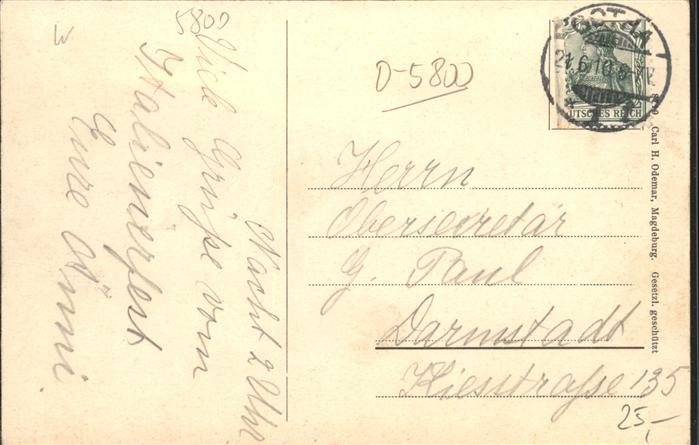 W
5800
Viele Grüße vom
Italienerfest
Eure Anni.
Nacht 2 Uhr
D-5800
GOTHA
21.6.10.8-9V.
1
DEUTSCHES REICH
Herrn
Obersecretär
G. Paul
Darmstadt
Kiesstraße 135
25,-
Carl H. Odemar, Magdeburg. Gesetzl. geschützt